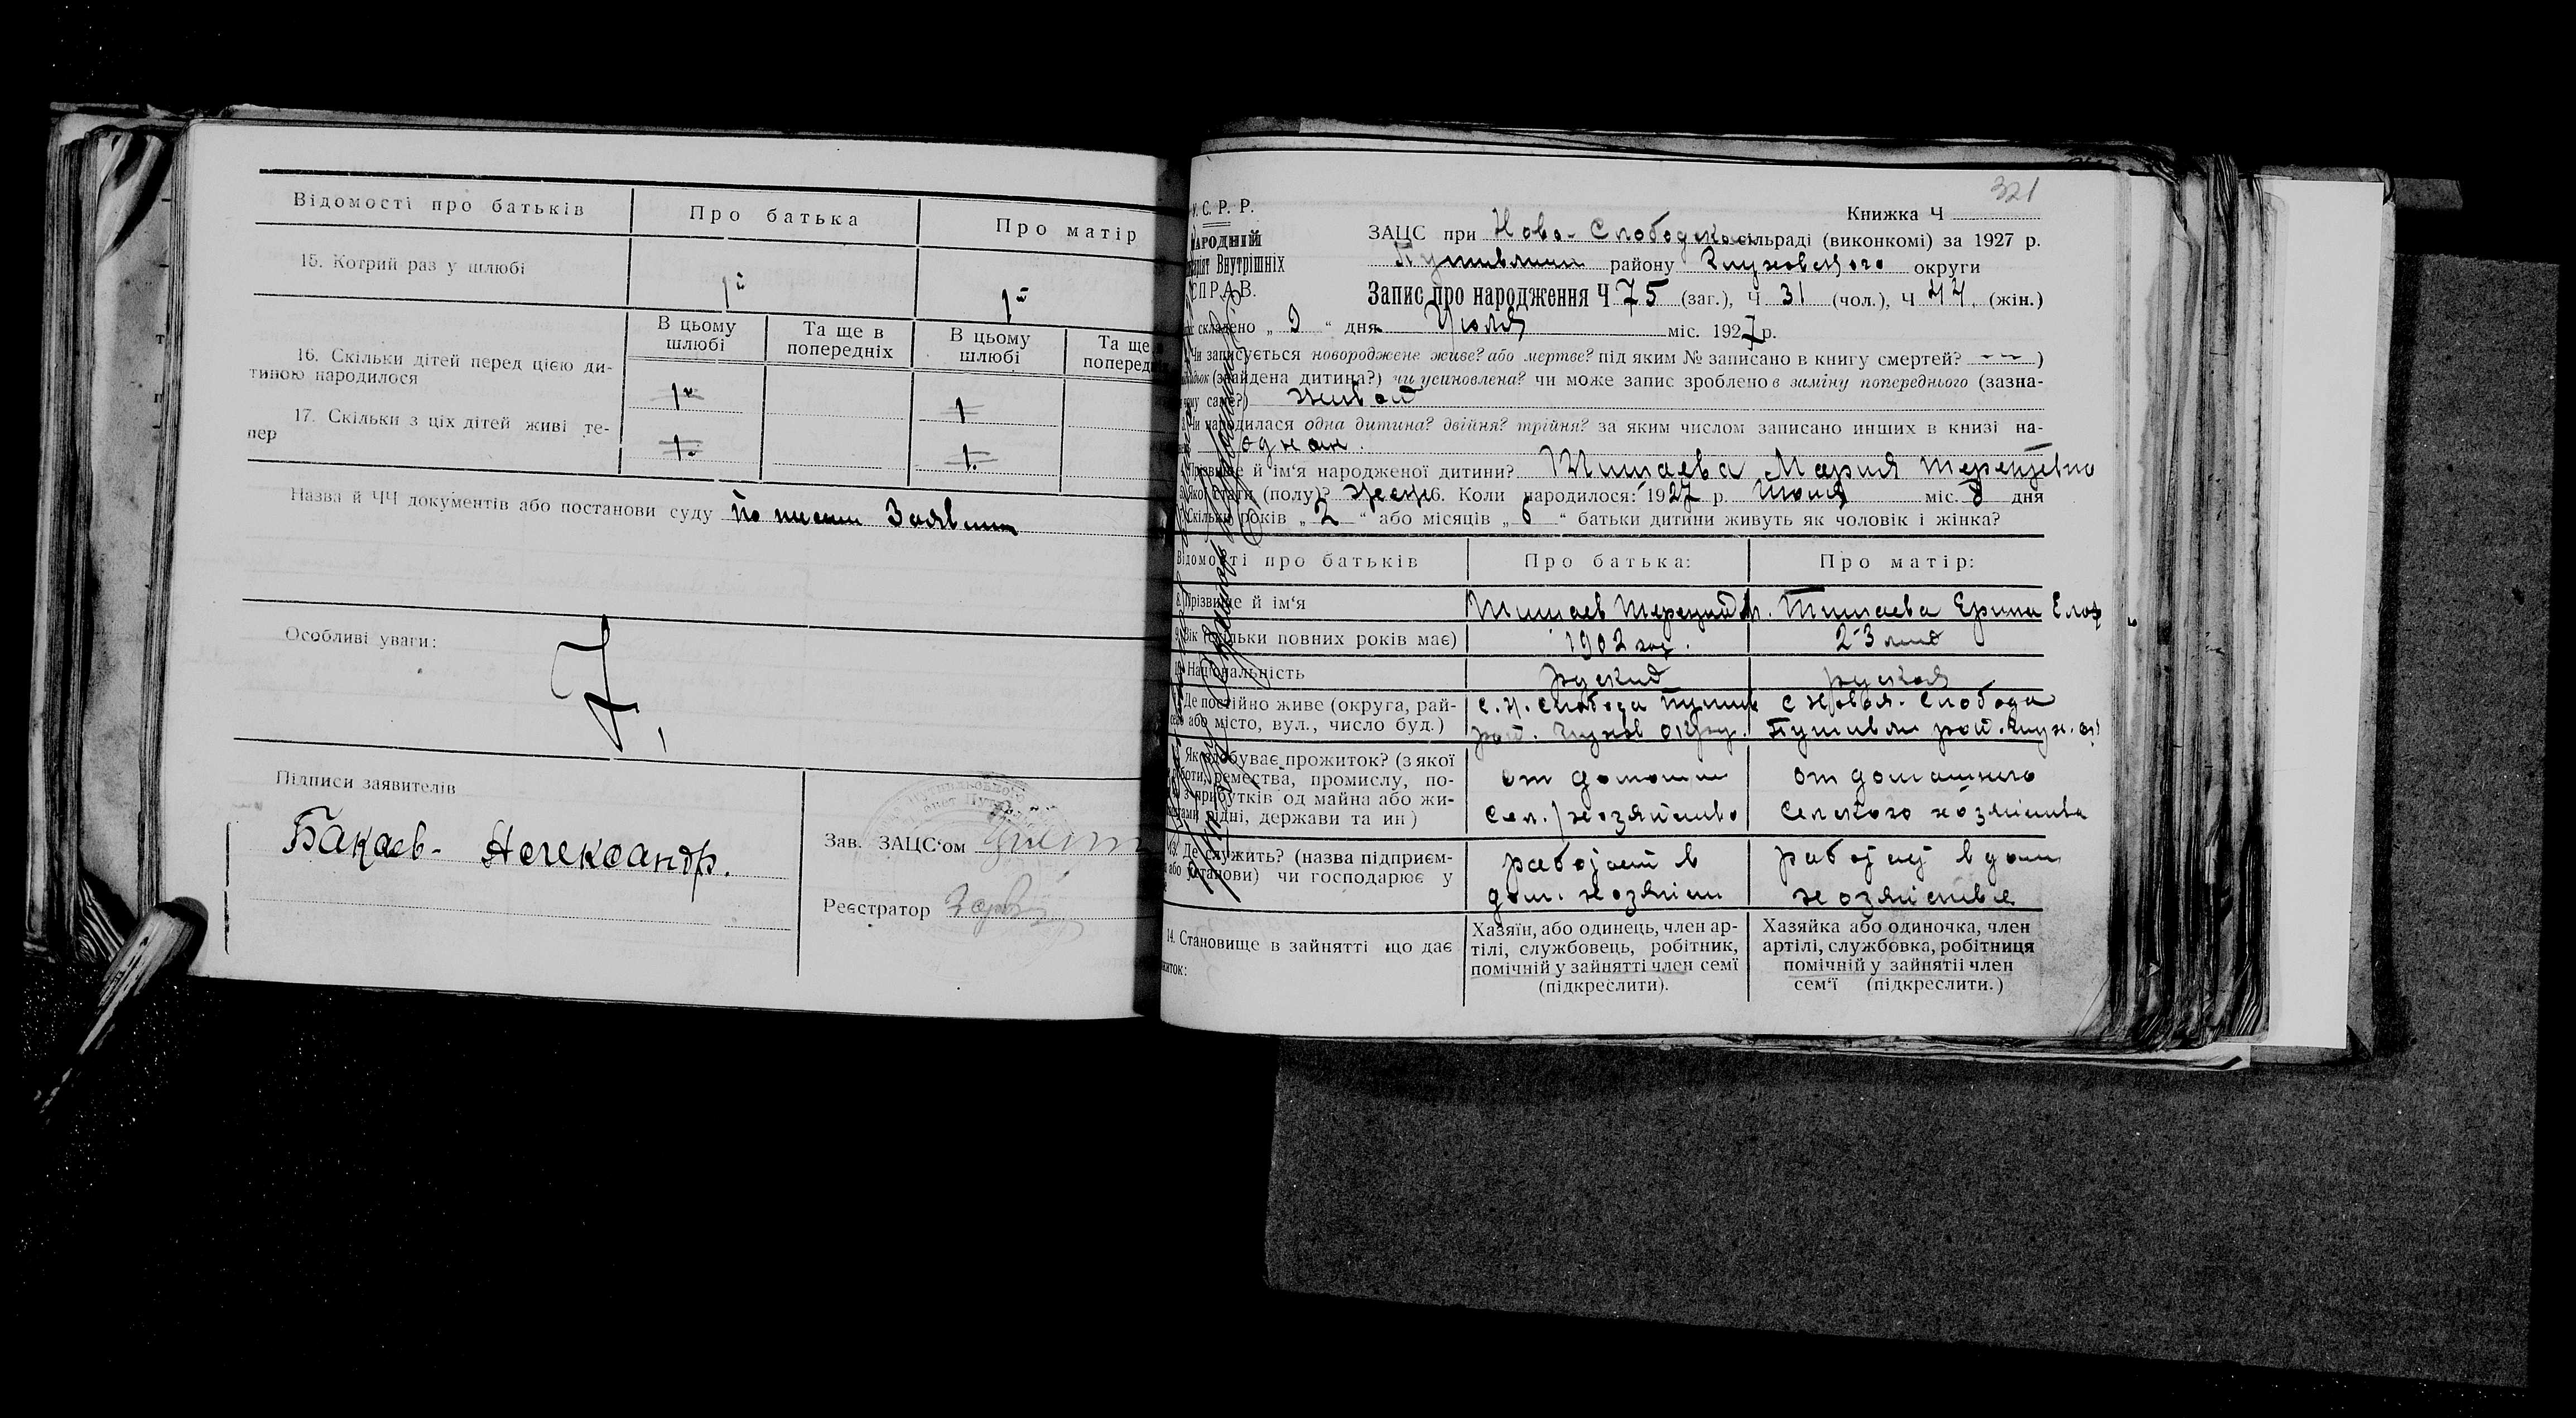 Відомості про батьків Про батька Про матір
15. Котрий раз у шлюбі 1й 1й
В цьому шлюбі Та ще в попередніх В цьому шлюбі Та ще попередн
16. Скільки дітей перед цією ди-
тиною народилося 1 1
17. Скільки з ціх дітей живі те-
пер 1. 1.
Назва й ЧЧ документів або постанови суду
Особливі уваги:
7
Підписи заявителів
Бакаев- Александр.
Зав. ЗАЦС‘ом
Реєстратор
321
У. С. Р. Р.
Книжка Ч
НАРОДНІЙ
ЗАЦС при Ново-Слободской сільраді (виконкомі) за 1927 р.
Внутрішніх
Путивльск району Глуховского округи
СПРАВ.
Запис про народження Ч 75 (заг.), Ч 31 (чол.), Ч 44 (жін.)
складено „ 9 “ дня Июля міс. 1927 р.
Чи записується новороджене живе? або мертве? під яким № записано в книгу смертей? )
(знайдена дитина?) чи усиновлена? чи може запис зроблено в заміну попереднього (зазна-
чому саме?) живой
Чи народилася одна дитина? двійня? трійня? за яким числом записано инших в книзі на-
одна
Прізвище й ім‘я народженої дитини? Мария Терентевна
Якої стати (полу)? женс 6. Коли народилося: 1927 р. Июля міс. 8 дня
Скільки років „ 2 “ або місяців „ 6 “ батьки дитини живуть як чоловік і жінка?
Відомості про батьків Про батька: Про матір:
8. Прізвище й ім‘я
9. Вік (скільки повних років має) 1902 год. 23 лет
10. Національність руский руская
Де постійно живе (округа, рай- с. Н. Слобода Путивл с Новая. Слобода
село або місто, вул., число буд.) рай. Глухов окру. Путивль рай. Глух. ок
Як здобуває прожиток? (з якої
роботи, ремества, промислу, по- от домашн от домашнего
з прибутків од майна або жи-
рідні, держави та ин) сел. хозяйство селского хозяйства
13. Де служить? (назва підприєм- работает в работает в дом
або установи) чи господарює у дом. хозяйст хозяйстве
14. Становище в зайнятті що дає
житок:
Хазяїн, або одинець, член ар-
тілі, службовець, робітник,
помічній у зайнятті член семї
(підкреслити).
Хазяйка або одиночка, член
артілі, службовка, робітниця
помічній у зайнятіі член
сем‘ї (підкреслити.)